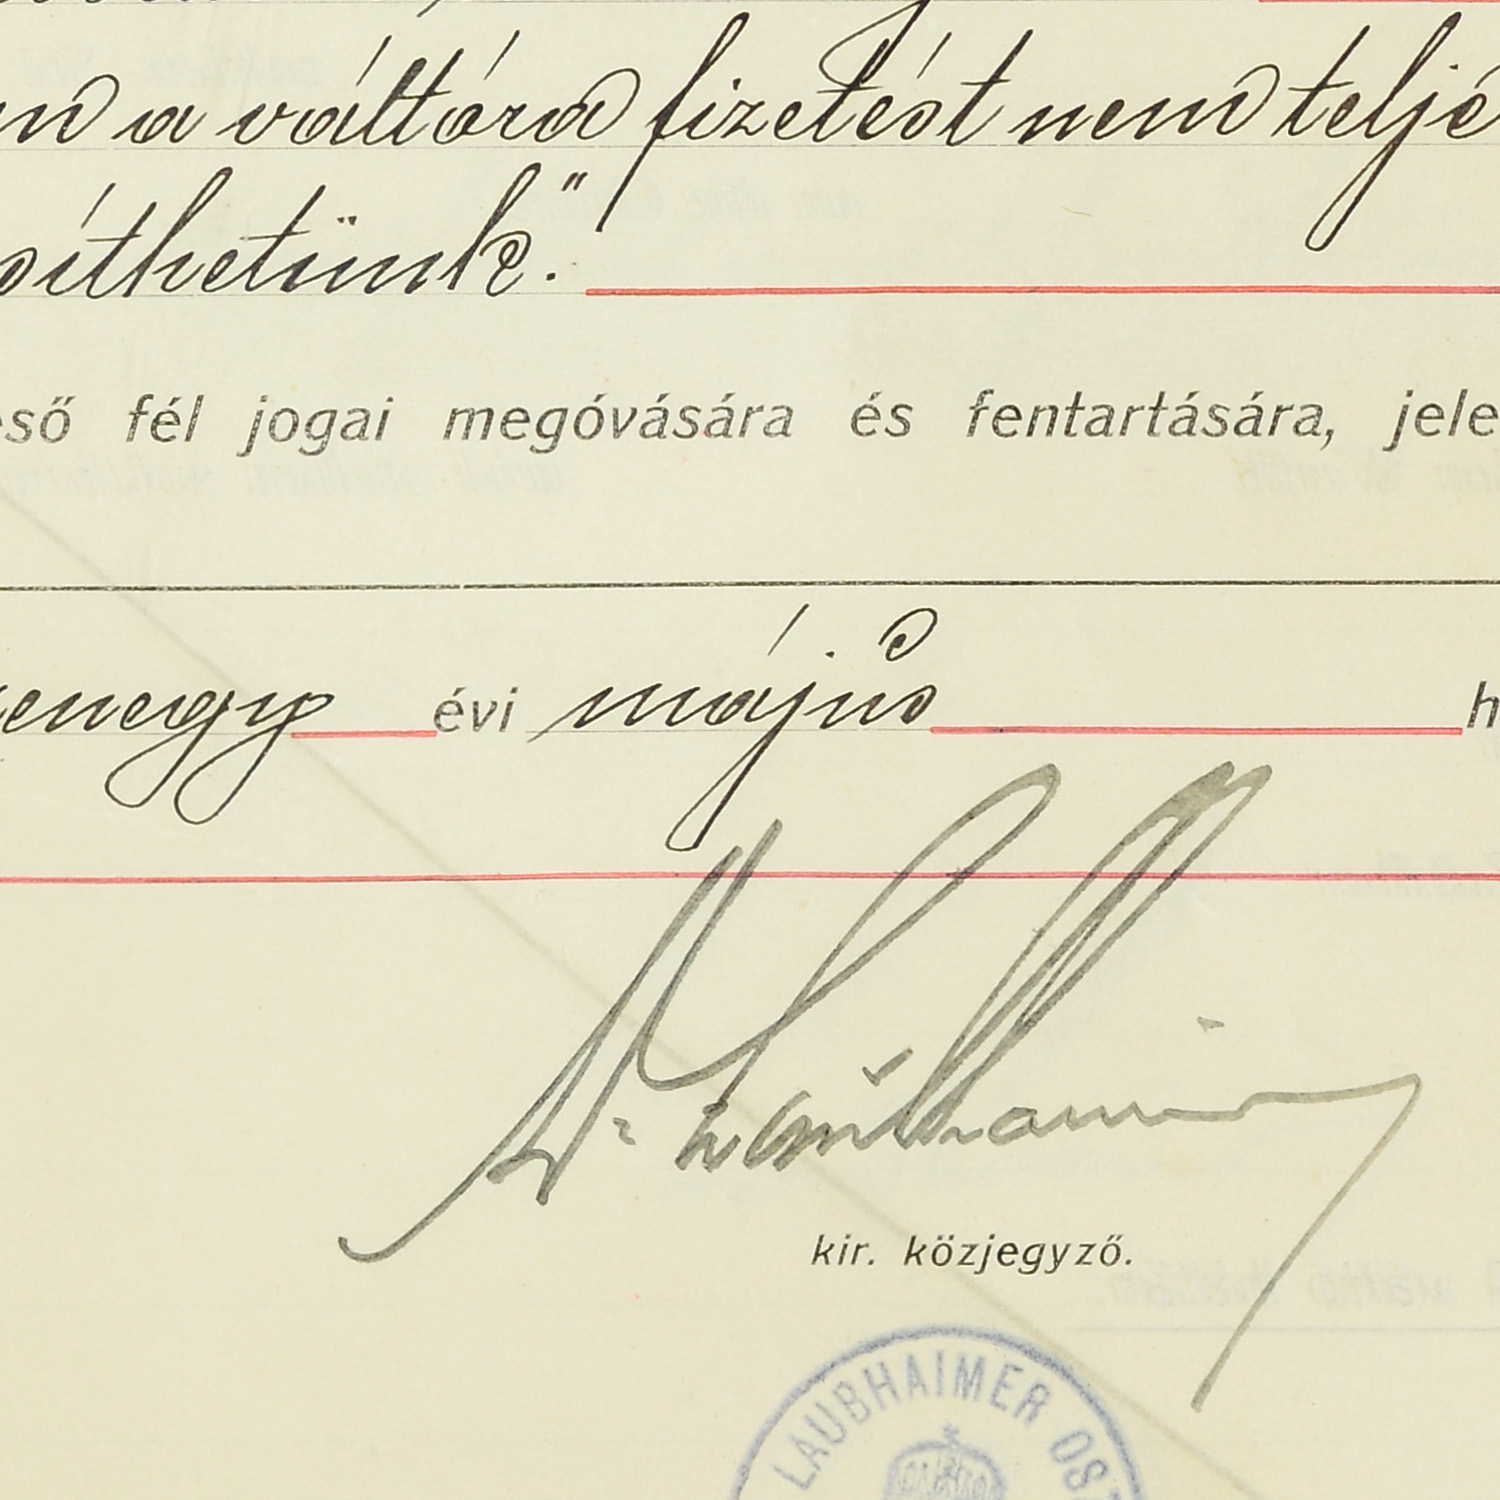 a váltóra fizetést nem teljé
síthetünk."
eső fél jogai megóvására és fentartására, jele
enegy évi május h
Dr.
kir. közjegyző.
LAUBHAIMER OSZ